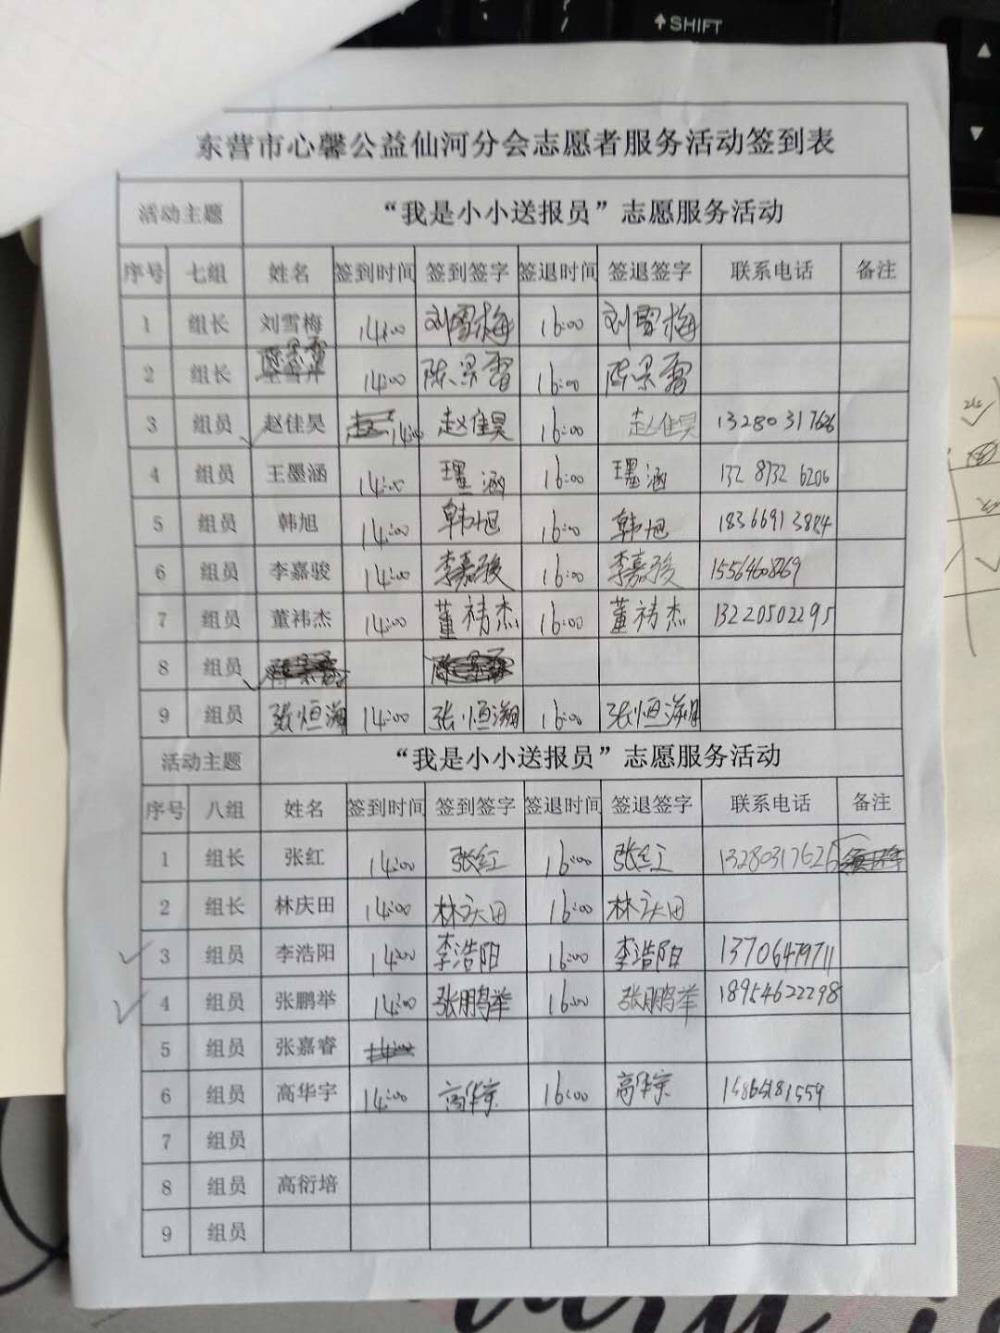 SHIFT
东营市心馨公益仙河分会志愿者服务活动签到表
活动主题 “我是小小送报员”志愿服务活动
序号 七组 姓名 签到时间 签到签字 签退时间 签退签字 联系电话 备注
1 组长 刘雪梅 14:00 刘雪梅 16:00 刘雪梅
2 组长 14:00 陈景霄 16:00 陈景霄
3 组员 赵佳昊 14:00 赵佳昊 16:00 赵佳昊 13280317626
4 组员 王墨涵 14:00 王墨涵 16:00 王墨涵 132 8732 6206
5 组员 韩旭 14:00 韩旭 16:00 韩旭
6 组员 李嘉骏 14:00 李嘉骏 16:00 李嘉骏
7 组员 董祎杰 14:00 董祎杰 16:00 董祎杰 13220502295
8 组员
9 组员 张恒瀚 14:00 张恒瀚 16:00 张恒瀚
活动主题 “我是小小送报员”志愿服务活动
序号 八组 姓名 签到时间 签到签字 签退时间 签退签字 联系电话 备注
1 组长 张红 14:00 张红 16:00 张红 13280317626
2 组长 林庆田 14:00 林庆田 16:00 林庆田
3 组员 李浩阳 14:00 李浩阳 16:00 李浩阳 13706479711
4 组员 张鹏举 14:00 张鹏举 16:00 张鹏举 18954622298
5 组员 张嘉睿
6 组员 高华宇 14:00 高华宇 16:00 高华宇
7 组员
8 组员 高衍培
9 组员